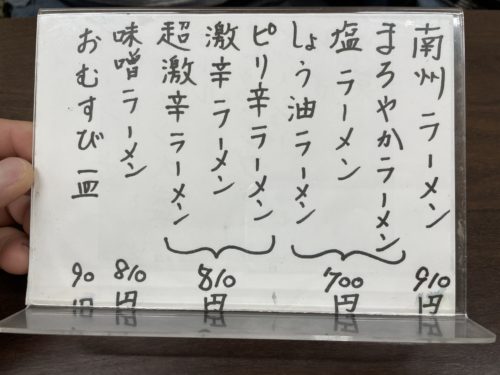 南州ラーメン
まろやかラーメン
塩ラーメン
しょう油ラーメン
ピリ辛ラーメン
激辛ラーメン
超激辛ラーメン
味噌ラーメン
おむすび一皿
910円
700円
810円
810円
90円